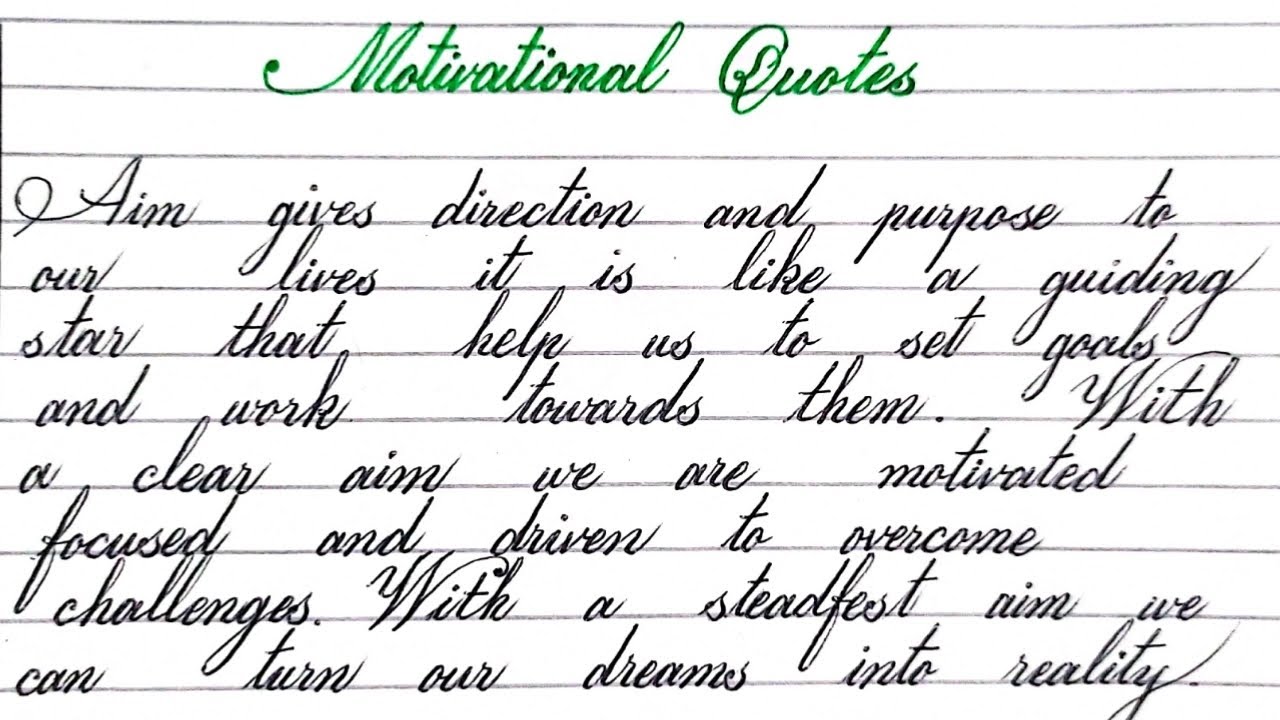 Motivational Quotes
Aim gives direction and purpose to
our lives it is like a guiding
star that help us to set goals
and work towards them. With
a clear aim we are motivated
focused and driven to overcome
challenges. With a steadfest aim we
can turn our dreams into reality.